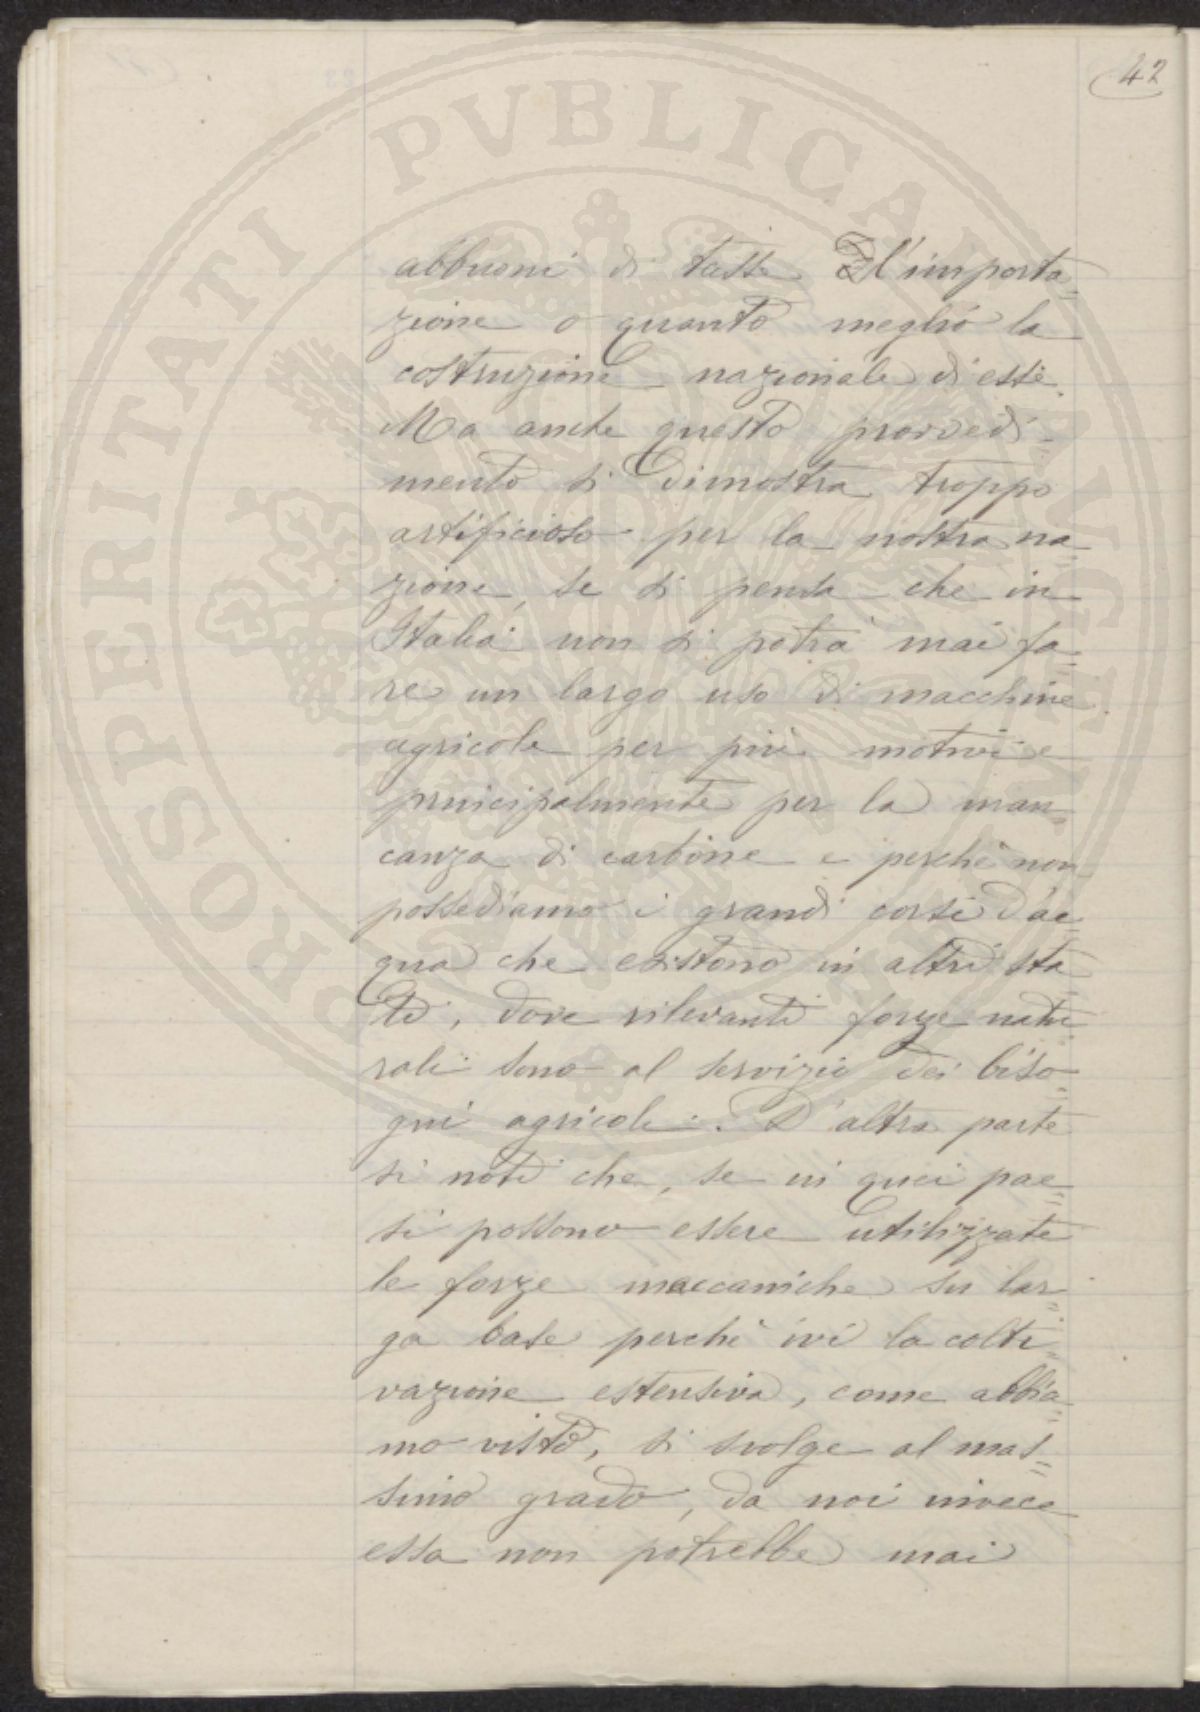 42
abbuoni di tasse l'importa=
zione o quanto meglio la
costruzione nazionale di esse.
Ma anche questo provvedi-
mento si dimostra troppo
artificioso per la nostra na=
zione, se si pensa che in
Italia non si potrà mai fa=
re un largo uso di macchine
agricole per più motivi e
principalmente per la man=
canza di carbone e perchè non
possediamo i grandi corsi d'ac=
qua che esistono in altri sta=
ti, dove rilevanti forze natu=
rali sono al servizio dei biso=
gni agricoli. D'altra parte
si noti che, se in quei pae=
si possono essere utilizzate
le forze meccaniche su lar=
ga base perchè ivi la colti=
vazione estensiva, come abbia=
mo visto, si svolge al mas=
simo grado, da noi invece
essa non potrebbe mai
PROSPERITATI PVBLICAE AVGENDAE